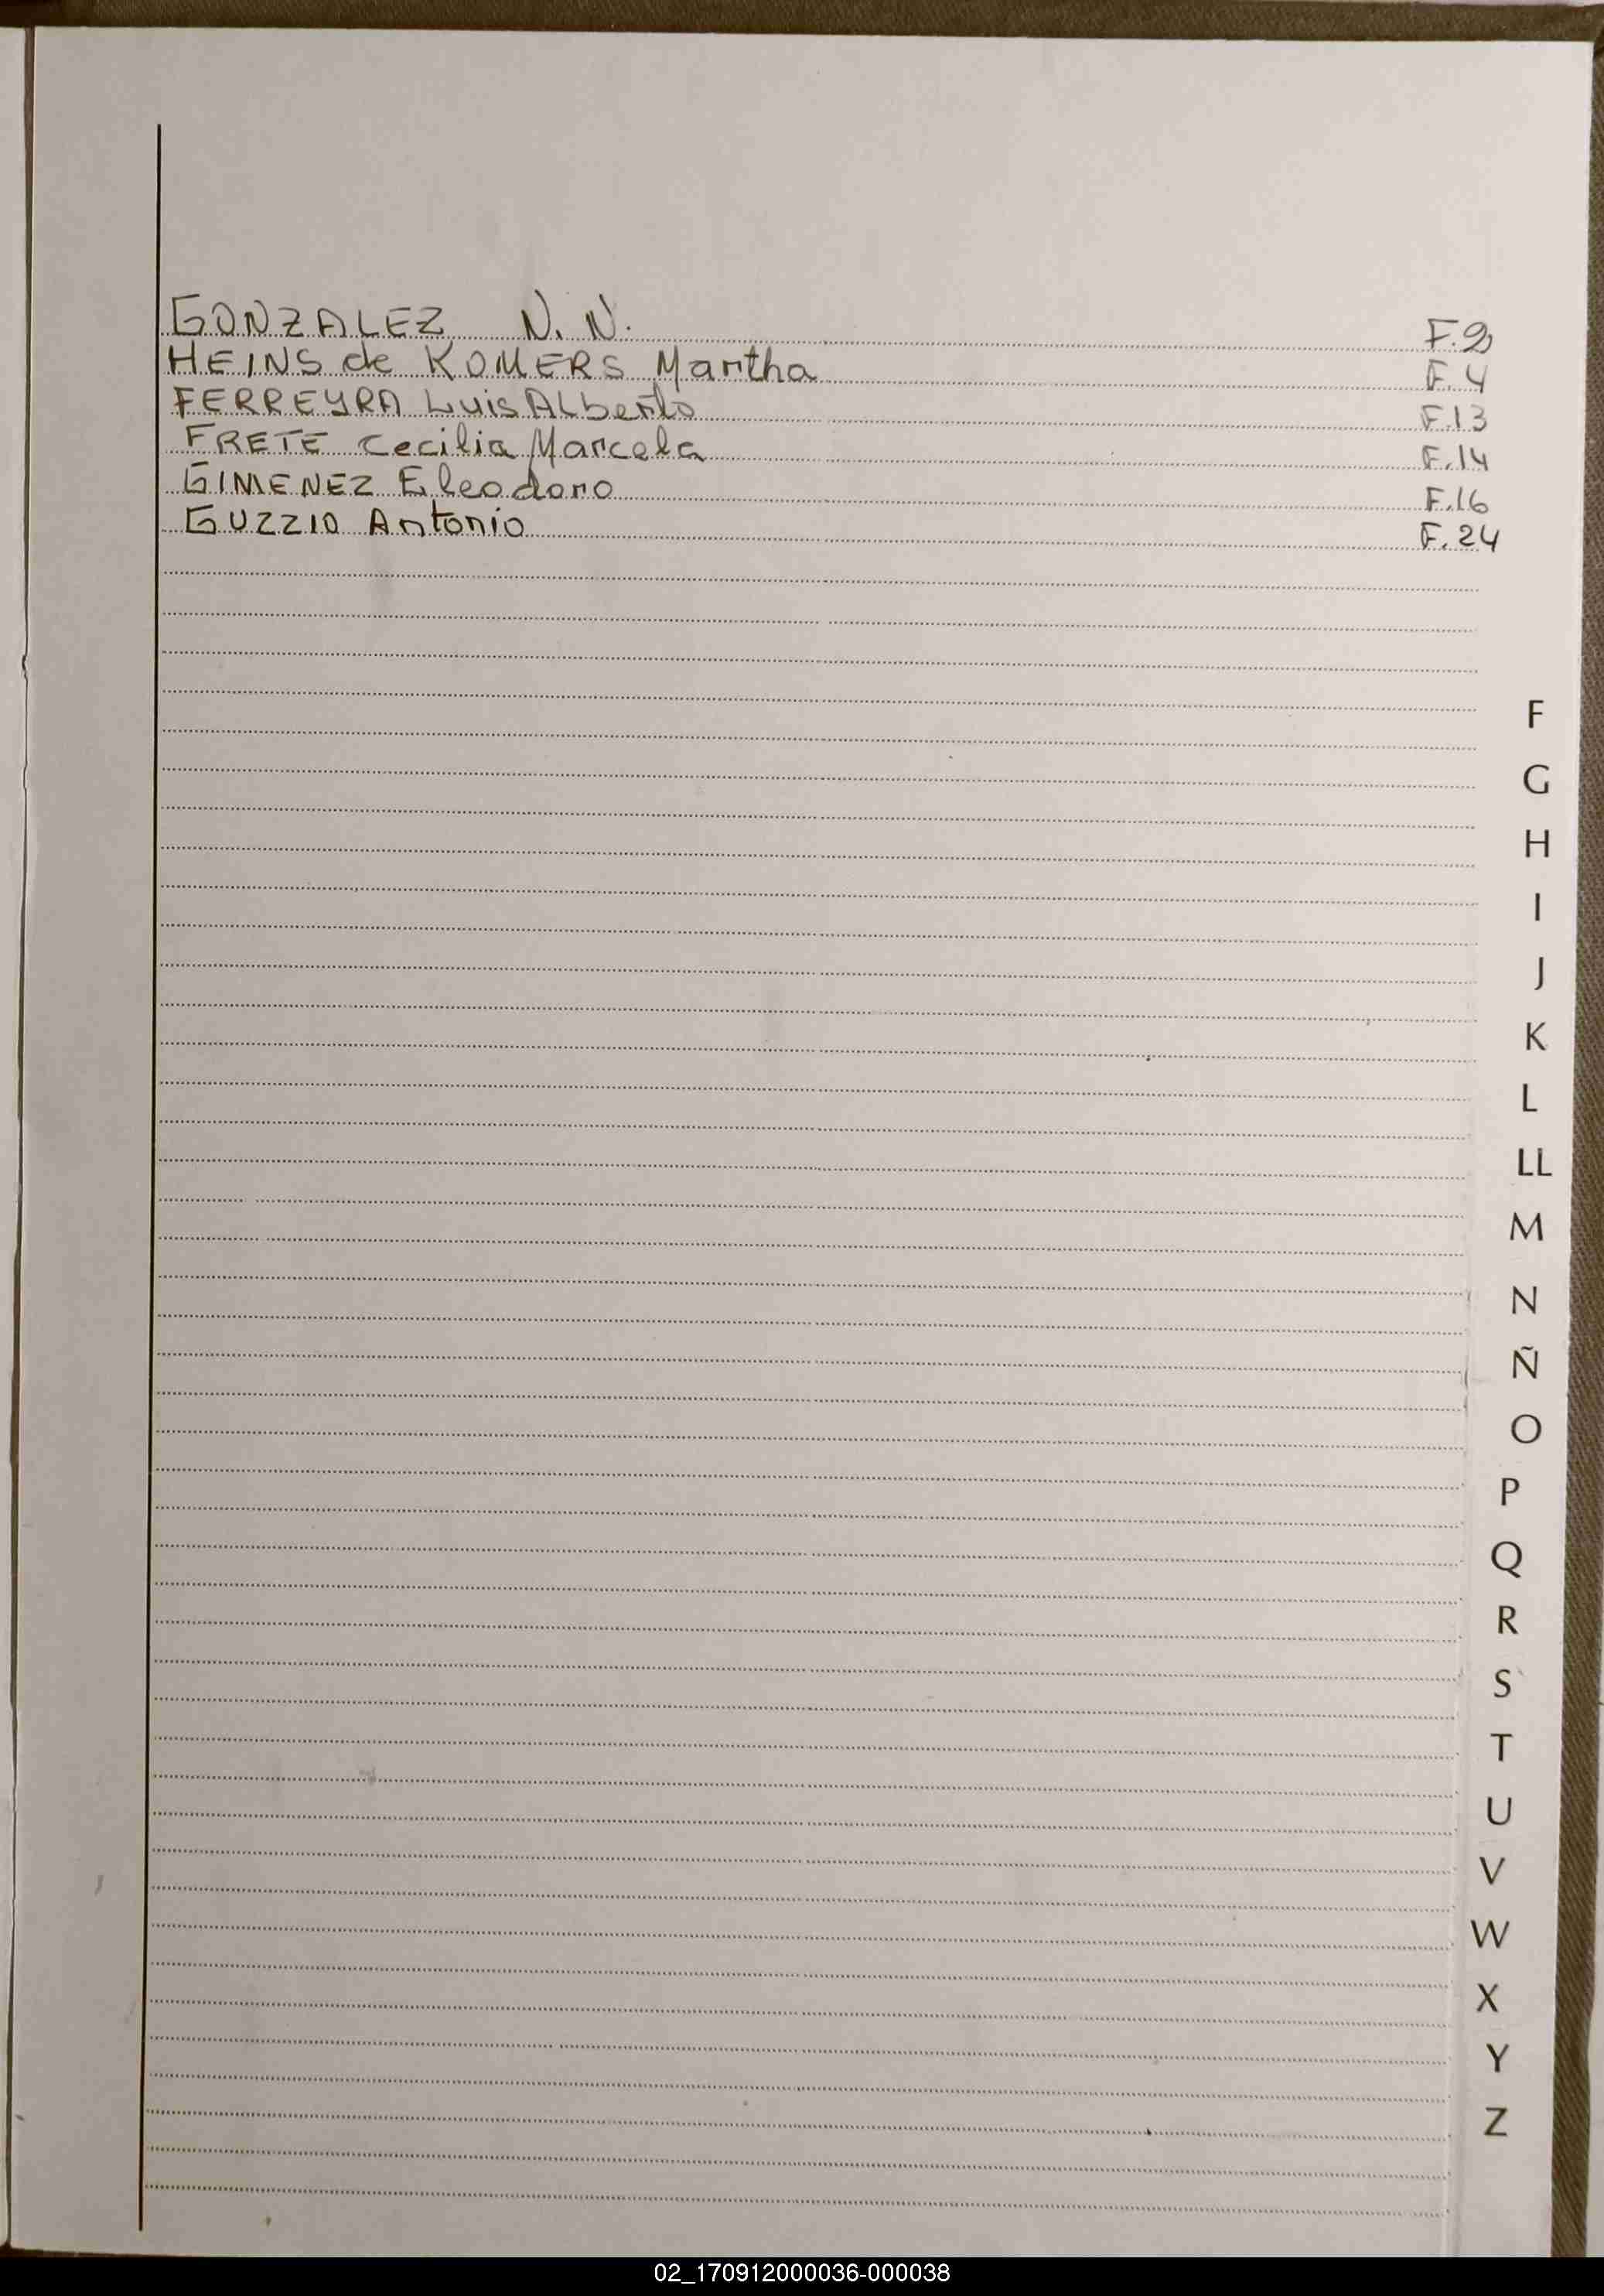 GONZALEZ N. N. F.2
HEINS de KOMERS Martha F.4
FERREYRA Luis Alberto F.13
FRETE Cecilia Marcela F.14
GIMENEZ Eleodoro F.16
GUZZIO Antonio F.24
F
G
H
I
J
K
L
LL
M
N
Ñ
O
P
Q
R
S
T
U
V
W
X
Y
Z
02_170912000036-000038